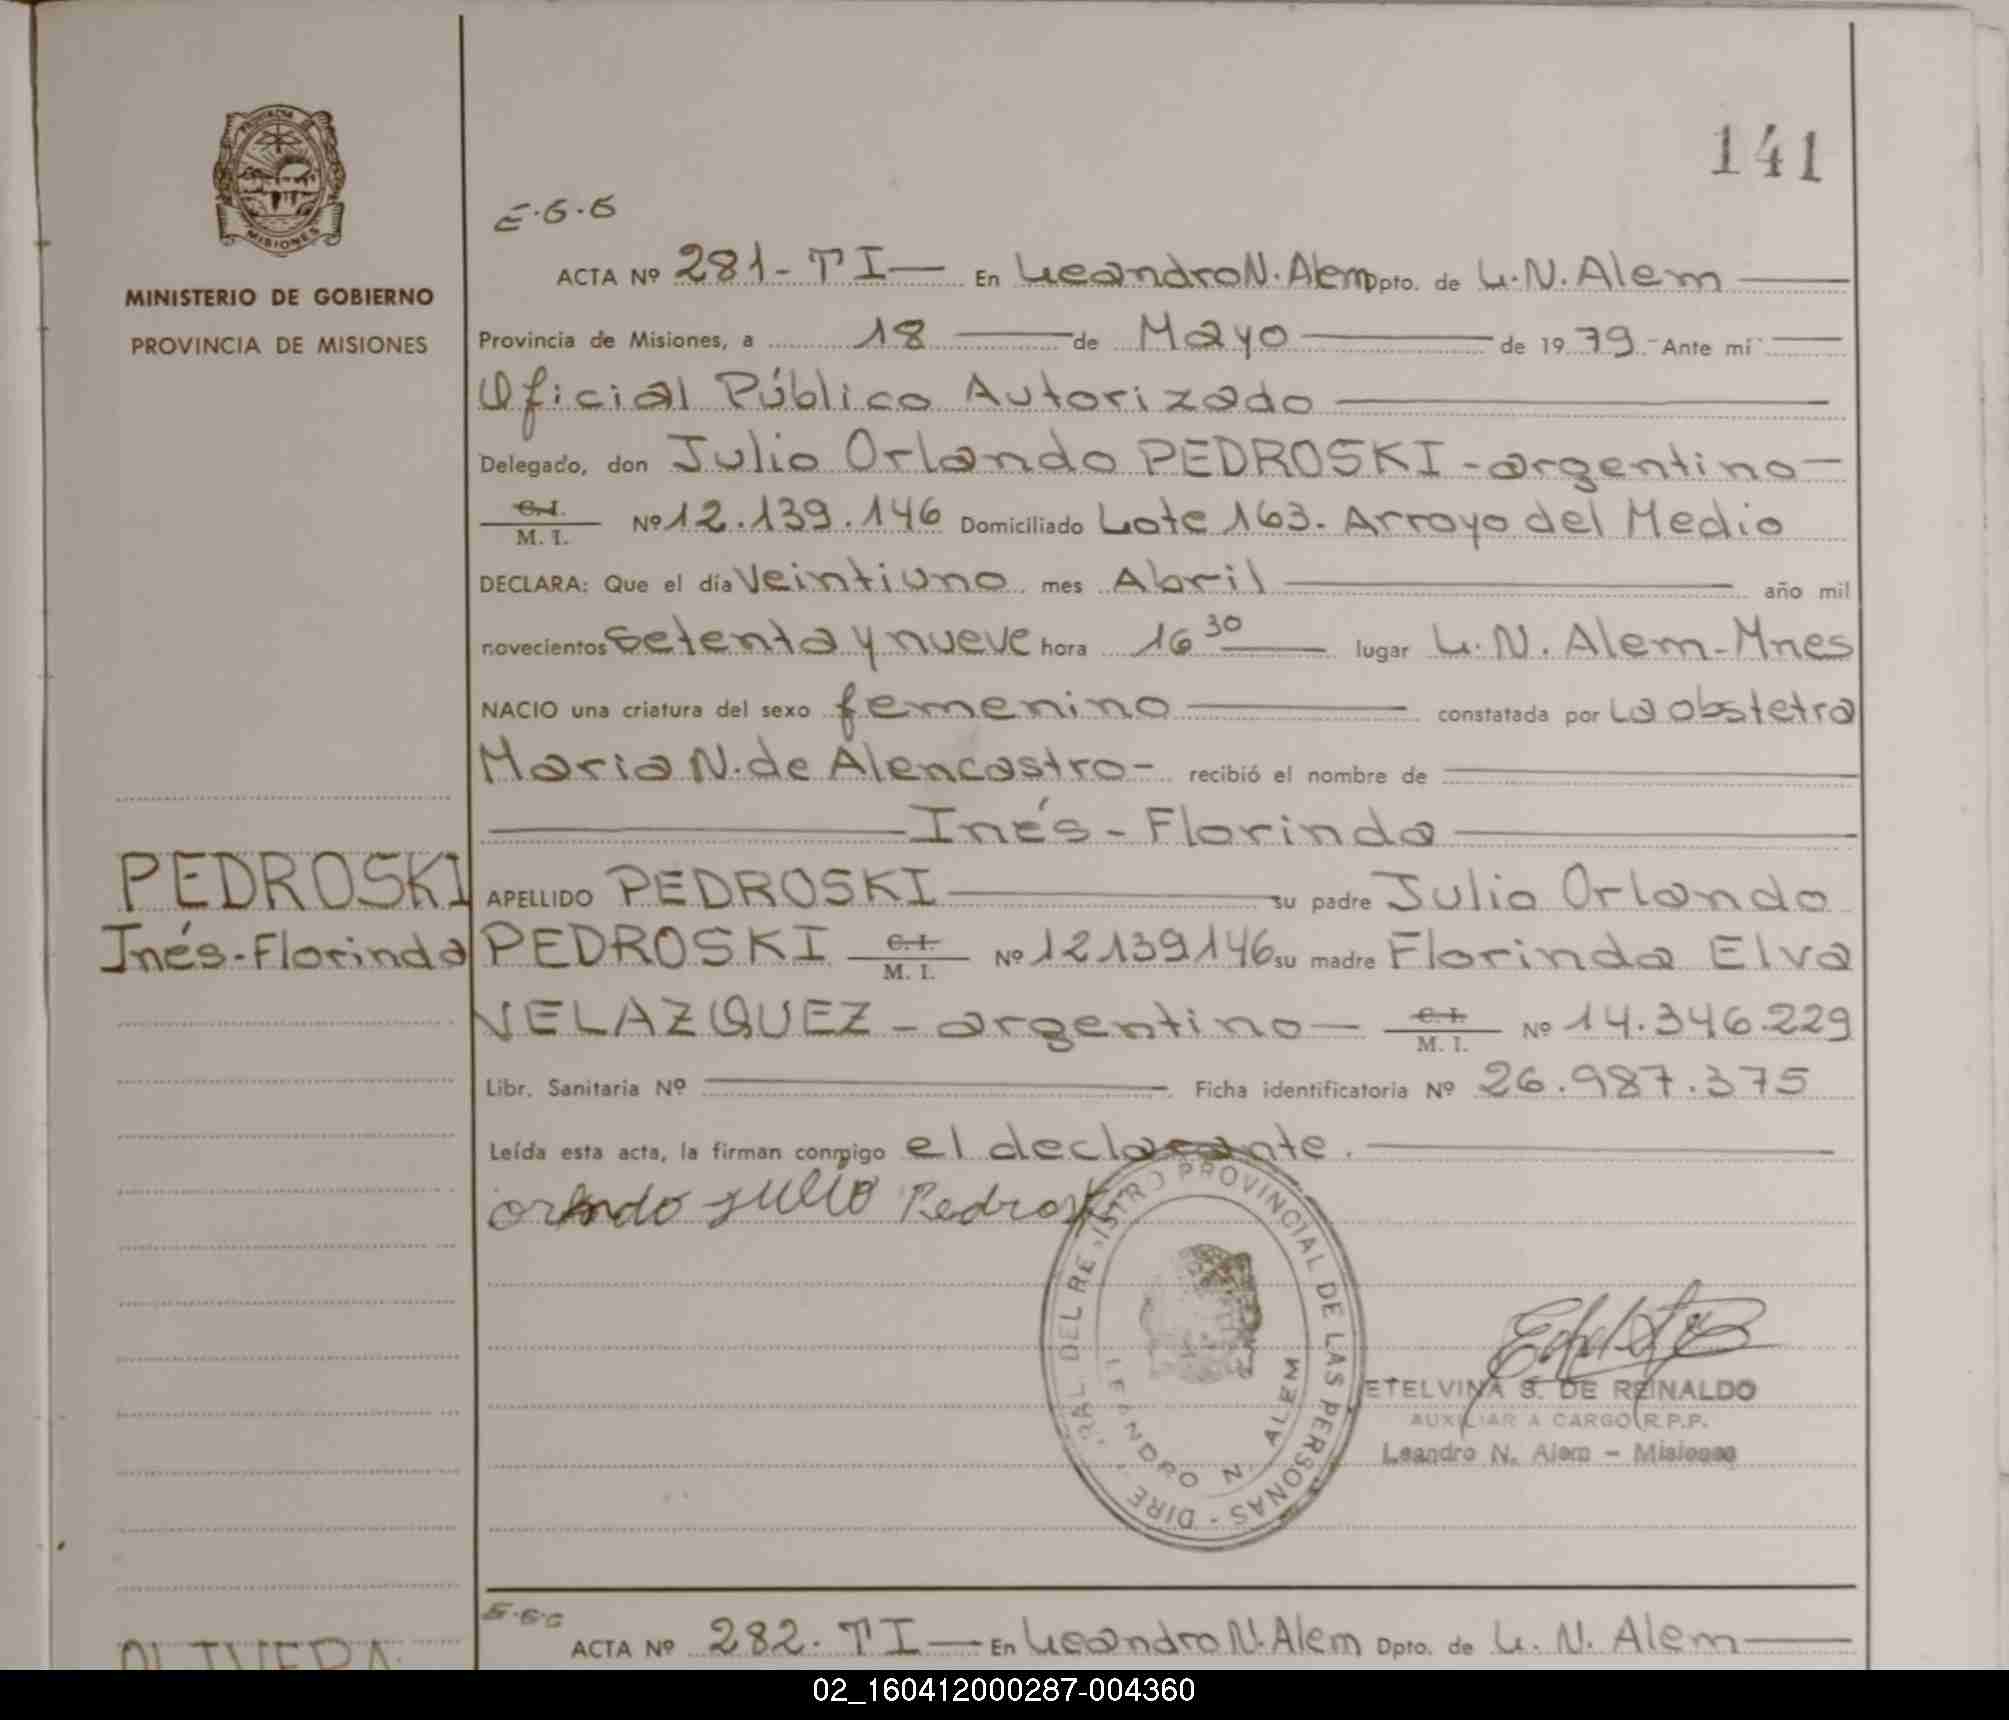 PROVINCIA DE
MISIONES
MINISTERIO DE GOBIERNO
PROVINCIA DE MISIONES
141
E·G·G
ACTA Nº 281 - TI — En Leandro N. Alem Dpto. de L. N. Alem —
Provincia de Misiones, a 18 — de Mayo — de 19 79 - Ante mi —
Oficial Público Autorizado —
Delegado, don Julio Orlando PEDROSKI - argentino —
C.I.
M. I. Nº 12.139.146 Domiciliado Lote 163. Arroyo del Medio
DECLARA: Que el día Veintiuno mes Abril — año mil
novecientos setenta y nueve hora 16 30 — lugar L. N. Alem - Mnes
NACIO una criatura del sexo femenino — constatada por La obstetra
Maria N. de Alencastro - recibió el nombre de —
— Inés - Florinda —
PEDROSKI
Inés - Florinda
APELLIDO PEDROSKI — su padre Julio Orlando
PEDROSKI C.I. M. I. Nº 12139146 su madre Florinda Elva
VELAZQUEZ - argentino — C.I. M. I. Nº 14.346.229
Libr. Sanitaria Nº — Ficha identificatoria Nº 26.987.375
Leída esta acta, la firman conmigo el declarante. —
orlando julio Pedroski
DEL REGISTRO PROVINCIAL DE LAS PERSONAS - DIRE
LEANDRO N. ALEM
ETELVINA S. DE REINALDO
AUXILIAR A CARGO R.P.P.
Leandro N. Alem - Misiones
E·G·G
ACTA Nº 282. TI — En Leandro N. Alem Dpto. de L. N. Alem —
OLIVERA
02_160412000287-004360